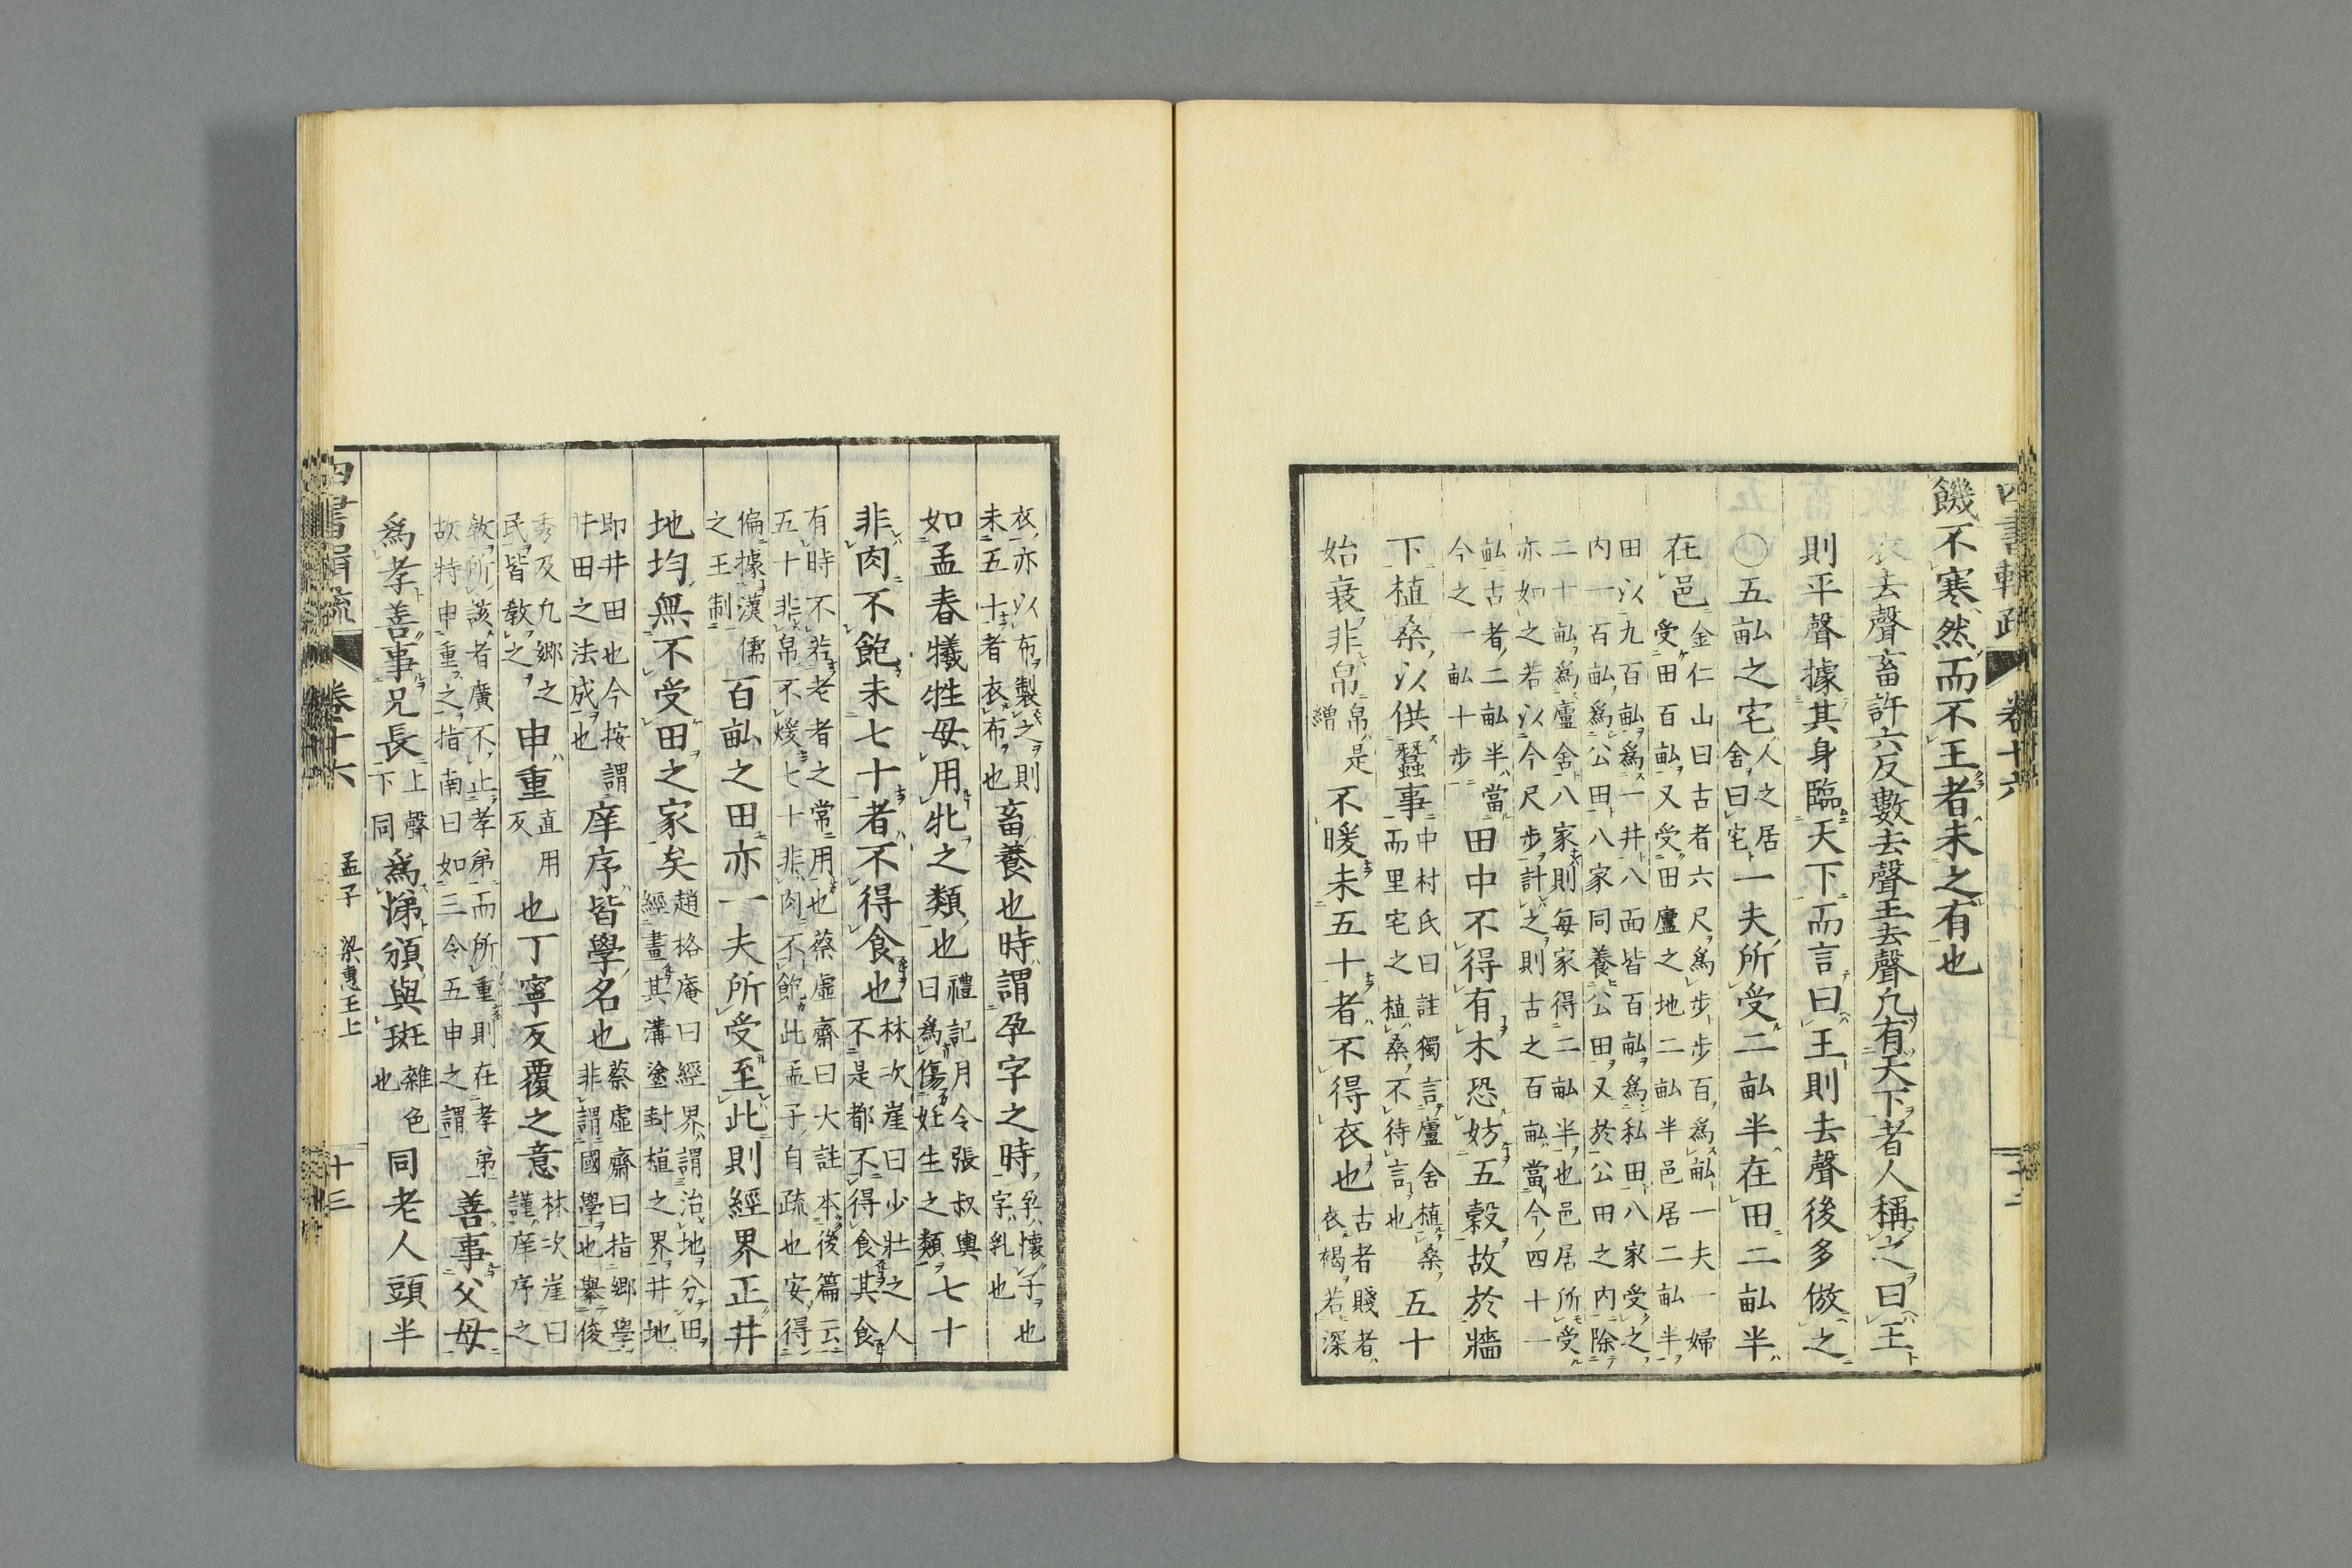 饑不寒然而不王者未之有也
衣去聲畜許六反數去聲王去聲凡有天下者人稱之曰王
則平聲據其身臨天下而言曰王則去聲後多倣之
〇五畝之宅人之居舍曰宅一夫所受二畝半在田二畝半
在邑金仁山曰古者六尺爲步步百爲畝一夫一婦
受田百畝又受田廬之地二畝半邑居二畝半
田以九百畝爲一井八面皆百畝爲私田八家受之
內一百畝爲公田八家同養公田又於公田之內除
二十畝爲廬舍八家則每家得二畝半也邑居所受
亦如之若以今尺步計之則古之百畝當今四十一
畝古者二畝半當
今之一畝十步
田中不得有木恐妨五穀故於牆
下植桑以供蠶事中村氏曰註獨言廬舍植桑
而里宅之植桑不待言也
五十
始衰非帛帛是繒不暖未五十者不得衣也古者賤者
衣褐若深
衣亦以布製之則
未五十者衣布也
畜養也時謂孕字之時孕懷子也
字乳也
如孟春犧牲毋用牝之類也禮記月令張叔輿
曰爲傷妊生之類
七十
非肉不飽未七十者不得食也林次崖曰少壯之人
不是都不得食其食
有時不若老者之常用也蔡虛齋曰大註本後篇云
五十非帛不煖七十非肉不飽此孟子自疏也安得
偏據漢儒
之王制
百畝之田亦一夫所受至此則經界正井
地均無不受田之家矣趙格庵曰經界謂治地分田
經畫其溝塗封植之界井地
即井田也今按謂
井田之法成也
庠序皆學名也蔡虛齋曰指鄉學
非謂國學也擧俊
秀及九鄉之
民皆敎之
申重直用
反
也丁寧反覆之意林次崖曰
謹庠序之
敎所該者廣不止孝弟而所重則在孝弟
故特申重之指南曰如三令五申之謂
善事父母
爲孝善事兄長上聲
下同
爲悌頒與斑雜色
也
同老人頭半
四書輯疏 卷十六 孟子 梁惠王上 十三